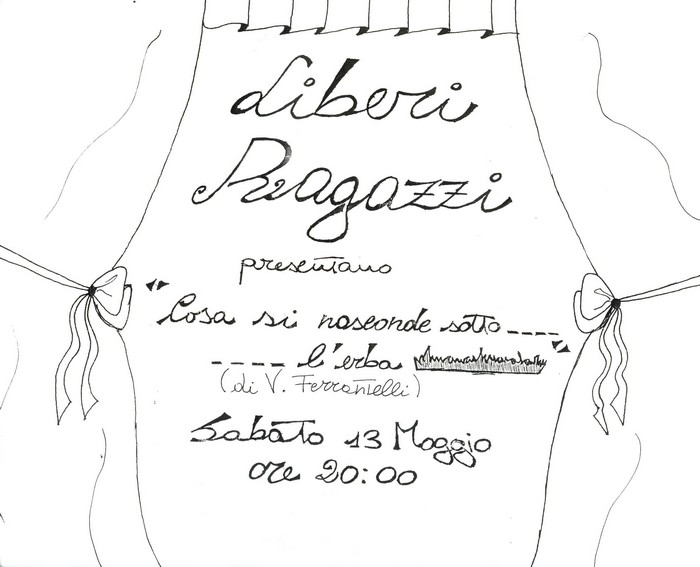 Liberi
Ragazzi
presentano
"Cosa si nasconde sotto----
---- l'erba"
(di V. Ferrantelli)
Sabato 13 Maggio
ore 20:00